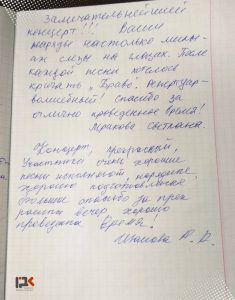 Замечательнейший
концерт!!! Ваши
наряды настолько милы
аж слезы на глазах. После
каждой песни хотелось
кричать „Браво". Репертуар-
волшебный! Спасибо за
отлично проведенное время!
Светлана.
Концерт, прекрасный,
Участники очень хорошие
песни исполняют, нарядные
хорошо подготовились
большое спасибо за прек
расный вечер хорошо
проведена время.